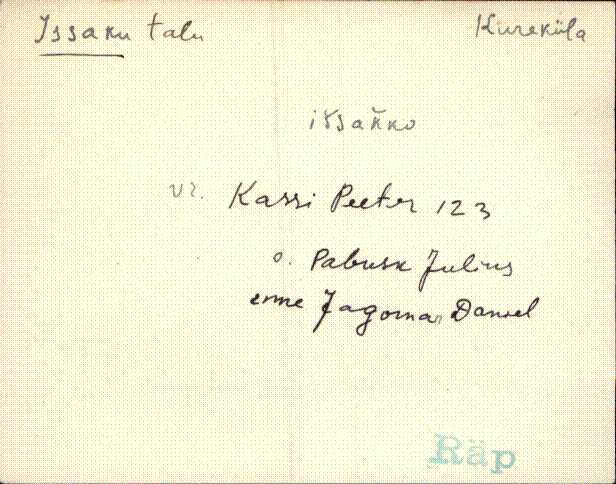 Issaku talu
Kureküla
vr. Kassi Peeter 123
o. Pabusk Julius
enne Jagomar Daniel
Räp